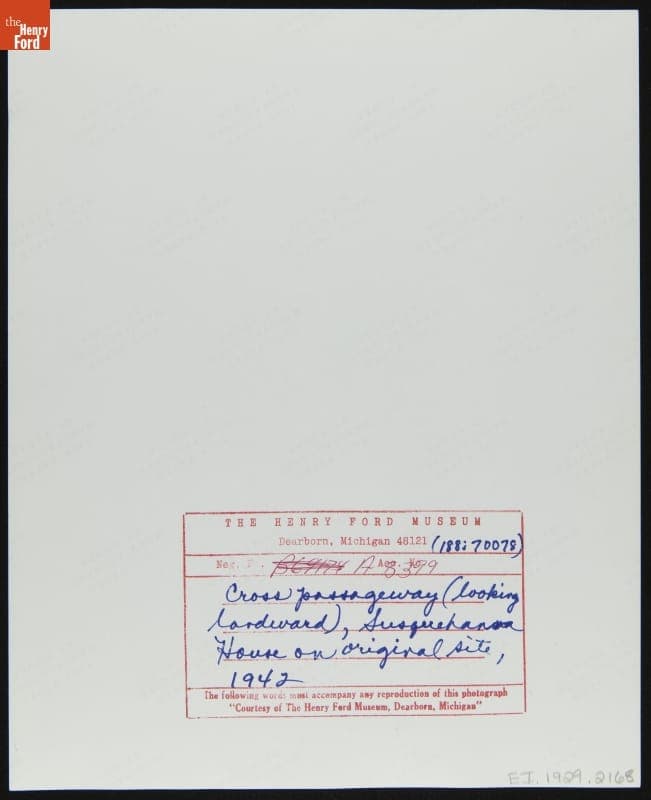 the
Henry
Ford
THE HENRY FORD MUSEUM
Dearborn, Michigan 48121 (188:70078)
Neg. A 8399 Acc. No.
Cross passageway (looking
landward), Susquehanna
House on original site,
1942
The following words must accompany any reproduction of this photograph
"Courtesy of The Henry Ford Museum, Dearborn, Michigan"
EI.1929.2168